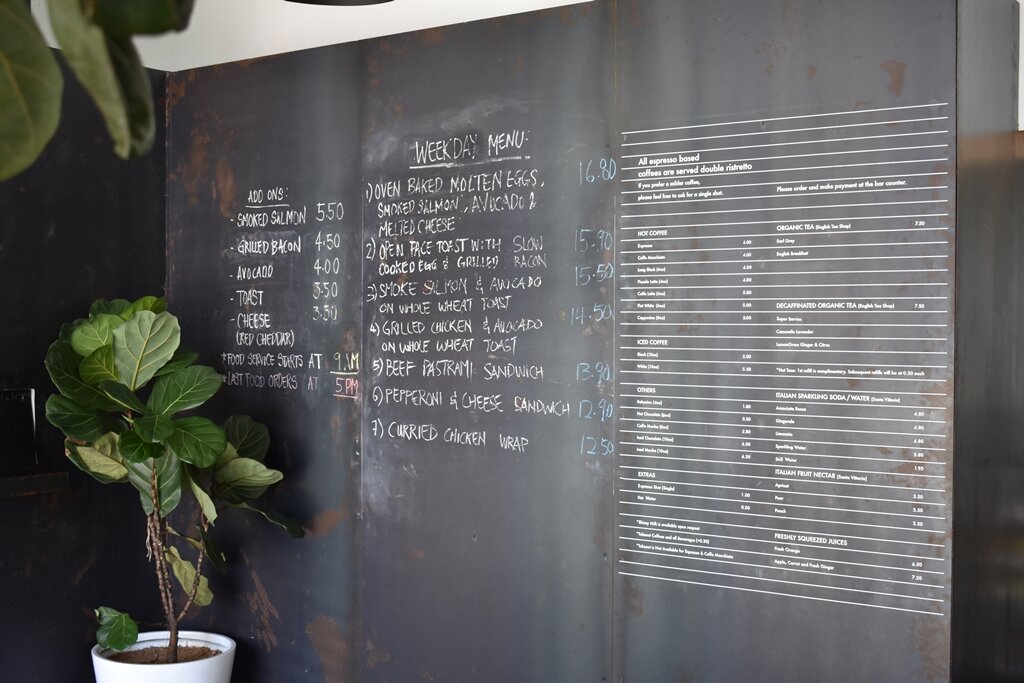 ADD ONS:
- SMOKED SALMON 5.50
- GRILLED BACON 4.50
- AVOCADO 4.00
- TOAST 3.50
- CHEESE 3.50
(RED CHEDDAR)
*FOOD SERVICE STARTS AT 9AM
*LAST FOOD ORDERS AT 5PM
WEEKDAY MENU:
1) OVEN BAKED MOLTEN EGGS, 16.80
SMOKED SALMON, AVOCADO &
MELTED CHEESE
2) OPEN FACE TOAST WITH SLOW 15.90
COOKED EGG & GRILLED BACON
3) SMOKE SALMON & AVOCADO 15.50
ON WHOLE WHEAT TOAST
4) GRILLED CHICKEN & AVOCADO 14.50
ON WHOLE WHEAT TOAST
5) BEEF PASTRAMI SANDWICH 13.90
6) PEPPERONI & CHEESE SANDWICH 12.90
7) CURRIED CHICKEN WRAP 12.50
All espresso based
coffees are served double ristretto
If you prefer a milder coffee,
please feel free to ask for a single shot.
Please order and make payment at the bar counter.
HOT COFFEE
Espresso 4.00
Caffe Macchiato 4.00
Long Black (6oz) 4.50
Piccolo Latte (3oz) 4.50
Caffe Latte (6oz) 5.00
Flat White (6oz) 5.00
Cappuccino (6oz) 5.00
ICED COFFEE
Black (10oz) 5.00
White (10oz) 5.50
OTHERS
Babycino (4oz) 1.80
Hot Chocolate (6oz) 5.50
Caffe Mocha (6oz) 5.80
Iced Chocolate (10oz) 6.00
Iced Mocha (10oz) 6.30
EXTRAS
Espresso Shot (Single) 1.00
Hot Water 0.50
*Skinny Milk is available upon request
*Takeout Coffees and all Beverages (+0.30)
*Takeout is Not Available for Espresso & Caffe Macchiato
ORGANIC TEA (English Tea Shop) 7.50
Earl Grey
English Breakfast
DECAFFINATED ORGANIC TEA (English Tea Shop) 7.50
Super Berries
Camomile Lavender
LemonGrass Ginger & Citrus
*Hot Teas: 1st refill is complimentary. Subsequent refills will be at 0.50 each
ITALIAN SPARKLING SODA / WATER (Santa Vittoria)
Aranciata Rossa 4.80
Gingerella 4.80
Limonata 4.80
Sparkling Water 5.80
Still Water 1.90
ITALIAN FRUIT NECTAR (Santa Vittoria)
Apricot 3.50
Pear 3.50
Peach 3.50
FRESHLY SQUEEZED JUICES
Fresh Orange 6.50
Apple, Carrot and Fresh Ginger 7.20